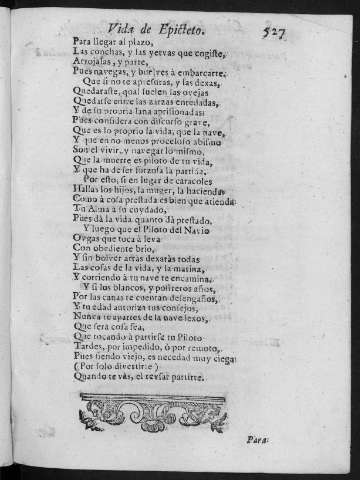 Vida de Epicteto. 527
Para llegar al plazo,
Las conchas, y las yervas que cogiste,
Arrojasas, y parte,
Pues navegas, y buelves à embarcarte.
Que si no te apresuras, y las dexas,
Quedaraste, qual suelen las ovejas
Quedarse entre las zarzas enredadas,
Y de su propria lana aprisionadas:
Pues considera con discurso grave,
Que es lo proprio la vida, que la nave,
Y que en no menos proceloso abismo
Son el vivir, y navegar lo mismo,
Que la muerte es piloto de tu vida,
Y que ha de ser forzosa la partida.
Por esto, si en lugar de caracoles
Hallas los hijos, la muger, la hacienda:
Como à cosa prestada es bien que atienda
Tu Alma à su cuydado,
Pues dà la vida quanto dà prestado.
Y luego que el Piloto del Navio
Oygas que toca à leva
Con obediente brio,
Y sin bolver atràs dexaràs todas
Las cosas de la vida, y la marina,
Y corriendo à tu nave te encamina.
Y si los blancos, y postreros años,
Por las canas te cuentan desengaños,
Y tu edad autoriza tus consejos,
Nunca te apartes de la nave lexos,
Que serà cosa fea,
Que tocando à partirse tu Piloto
Tardes, por impedido, ò por remoto,
Pues siendo viejo, es necedad muy ciega
(Por solo divertirte)
Quando te vàs, el reusar partirte.
Para